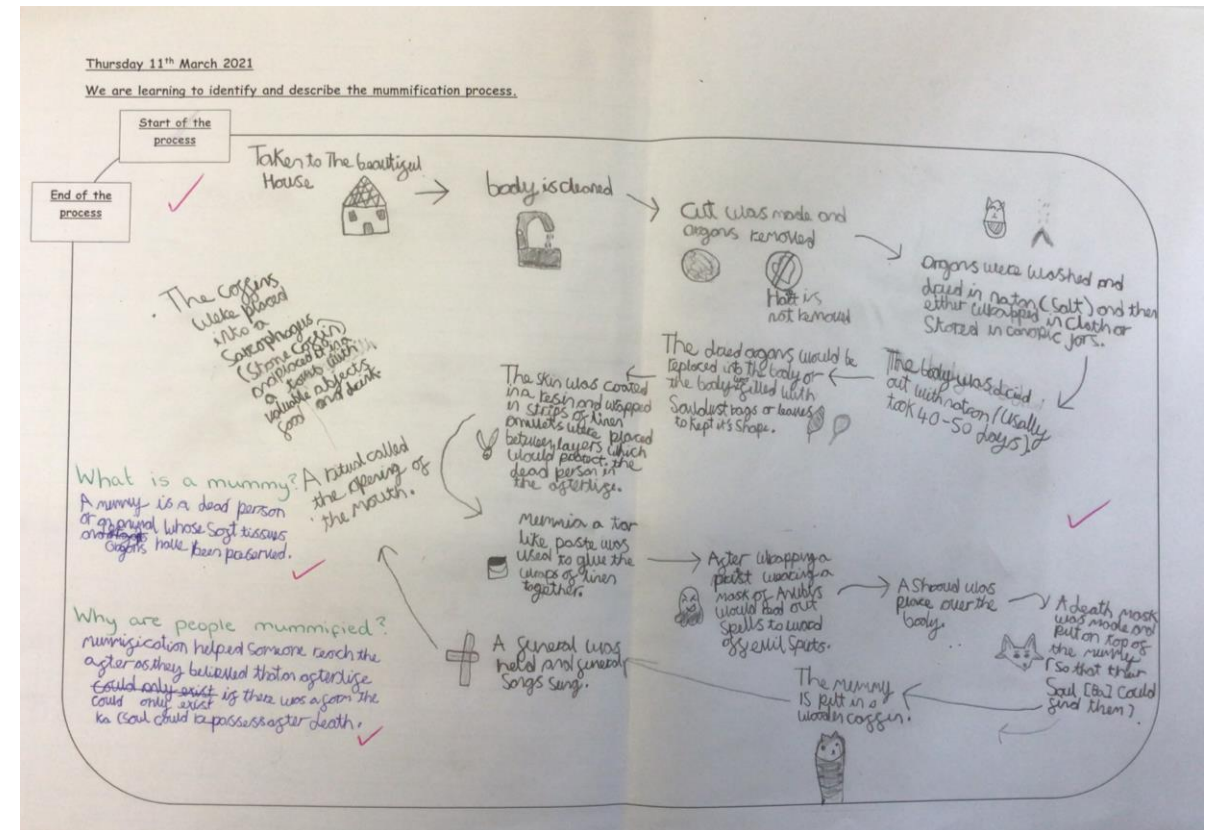 Thursday 11th March 2021
We are learning to identify and describe the mummification process.
Start of the
process
End of the
process
Taken to The beautiful
House
body is cleaned
Cut was made and
organs removed
Hart is
not removed
Organs were washed and
dried in naton (Salt) and then
either wrapped in cloth or
Stored in canopic jars.
The body was dried
out with natron (Usally
took 40-50 days).
The dried organs would be
replaced into the body or
the body was filled with
Sawdust bags or leaves
to kept it's shape.
The skin was coated
in a resin and wrapped
in strips of linen
amulets were placed
between layers which
would protect the
dead person in
the afterlife.
Mummia a tar
like paste was
used to glue the
wraps of linen
together.
After wrapping a
priest wearing a
mask of Anubis
would read out
spells to ward
off evil spirts.
A Shroud was
place over the
body.
A death mask
was made and
put on top of
the mummy
(So that their
Soul [Ba] could
find them)
The mummy
is put in a
wooden coffin.
A funeral was
held and funeral
Songs sung.
A ritual called
the opening of
the Mouth.
The coffins
were placed
into a
Sarcophagus
(Stone coffin)
and placed being
a tomb with
valuable objects
food and drink
What is a mummy?
A mummy is a dead person
or animal whose soft tissues
and organs have been preserved.
Why are people mummified?
mummification helped someone reach the
after as they believed that an afterlife
could only exist
could only exist if there was a form the
ka (soul could be possess after death.